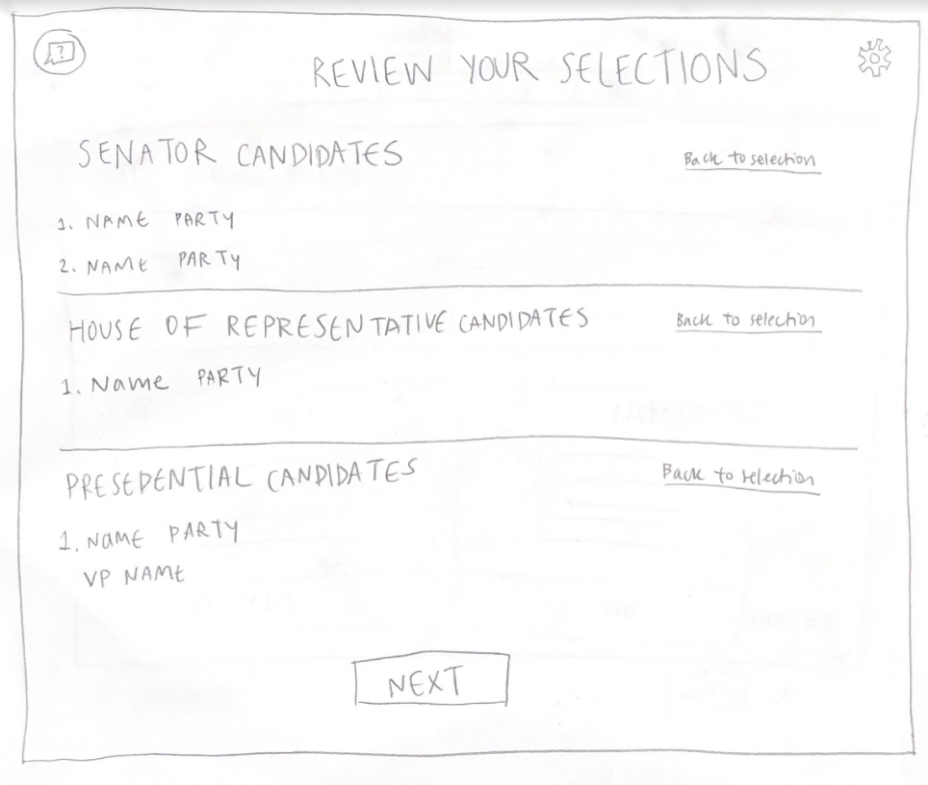 ?
REVIEW YOUR SELECTIONS
SENATOR CANDIDATES
Back to selection
1. NAME PARTY
2. NAME PARTY
HOUSE OF REPRESENTATIVE CANDIDATES
Back to selection
1. Name PARTY
PRESEDENTIAL CANDIDATES
Back to selection
1. NAME PARTY
VP NAME
NEXT